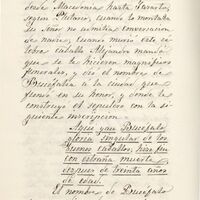 desde Macedonia hasta Tarento,
segun Plutarco, cuando lo montaba
su Amo no admitia conversacion
de nadie, cuando murió este cé-
lebre caballo Alejandro mandó
que se le hicieran magníficos
funerales, y dió el nombre de
Bucefalea a la ciudad que
en su honor, y donde le
construyó el sepulcro con la si-
guiente inscripcion
Aqui yace Bucéfalo,
gloria singular de los
buenos caballos,
con estraña muerte
despues de treinta años
de edad.
El nombre de Bucéfalo